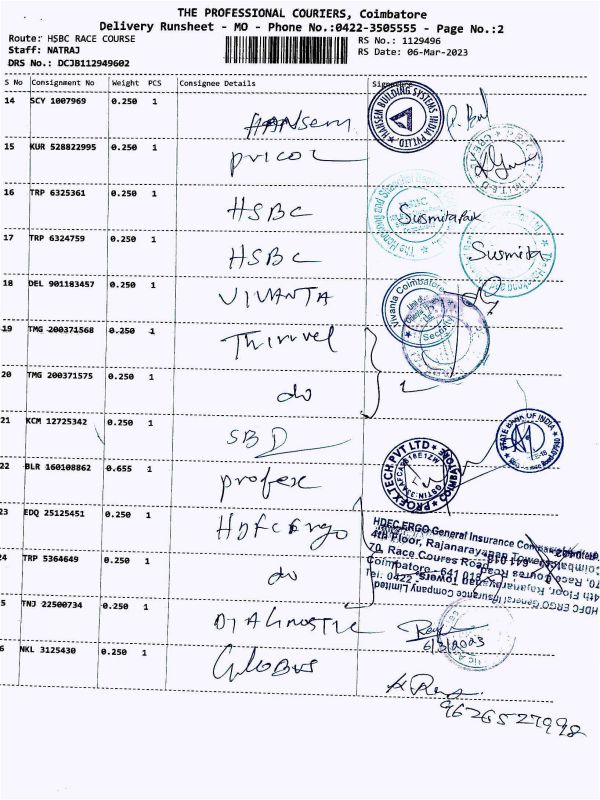 THE PROFESSIONAL COURIERS, Coimbatore
Delivery Runsheet - MO - Phone No.:0422-3505555 - Page No.:2
Route: HSBC RACE COURSE RS No.: 1129496
Staff: NATRAJ RS Date: 06-Mar-2023
DRS No.: DCJB112949602
S No Consignment No Weight PCS Consignee Details Signature
14 SCY 1007969 0.250 1
HANSem
HANSEM BUILDING SYSTEMS INDIA PVT LTD
15 KUR 528822995 0.250 1
pricol
16 TRP 6325361 0.250 1
HSBC
Susmita
17 TRP 6324759 0.250 1
HSBC
Susmita
18 DEL 901183457 0.250 1
VIVANTA
Vivanta Coimbatore
Security
19 TMG 200371568 0.250 1
20 TMG 200371575 0.250 1
do
21 KCM 12725342 0.250 1
STATE BANK OF INDIA
22 BLR 160108862 0.655 1
profex
PROFEX TECH PVT LTD
COIMBATORE
23 EDQ 25125451 0.250 1
HDFC Ergo
HDFC ERGO General Insurance Company Limited
4th Floor, Rajanarayanan Towers
70, Race Coures Road
Coimbatore - 641 018
Tel: 0422
24 TRP 5364649 0.250 1
do
5 TNJ 22500734 0.250 1
DIAGNOSTIC
6/3/2023
6 NKL 3125430 0.250 1
Globus
9626527998